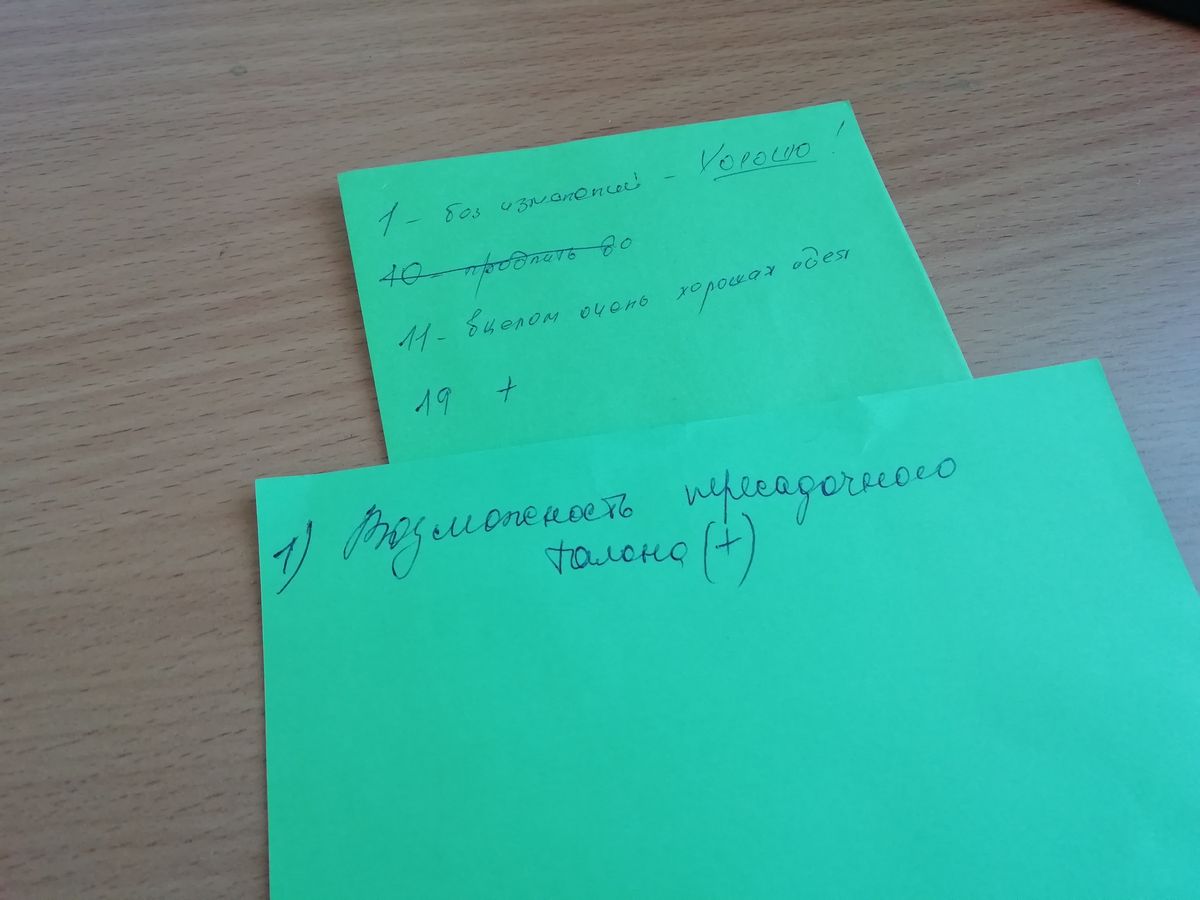 1 - без изменений - Хорошо!
10 - продлить до
11 - вцелом очень хорошая идея
19 +
1) Возможность пересадочного
талона (+)